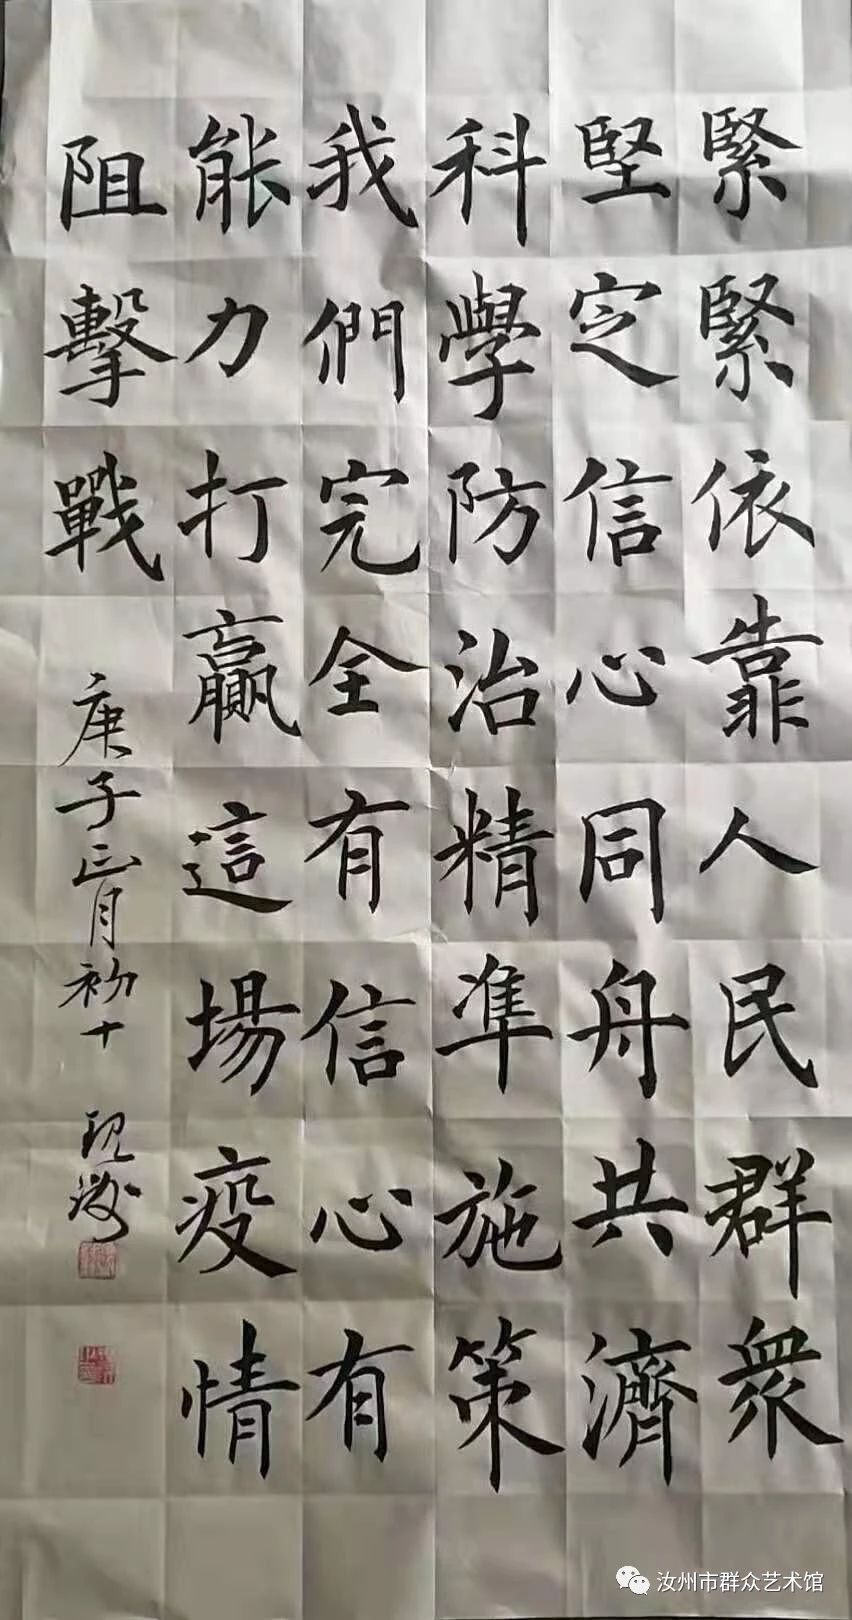 緊緊依靠人民群眾
堅定信心同舟共濟
科學防治精凖施策
我們完全有信心有
能力打贏這場疫情
阻擊戰
庚子正月初十
汝州市群众艺术馆